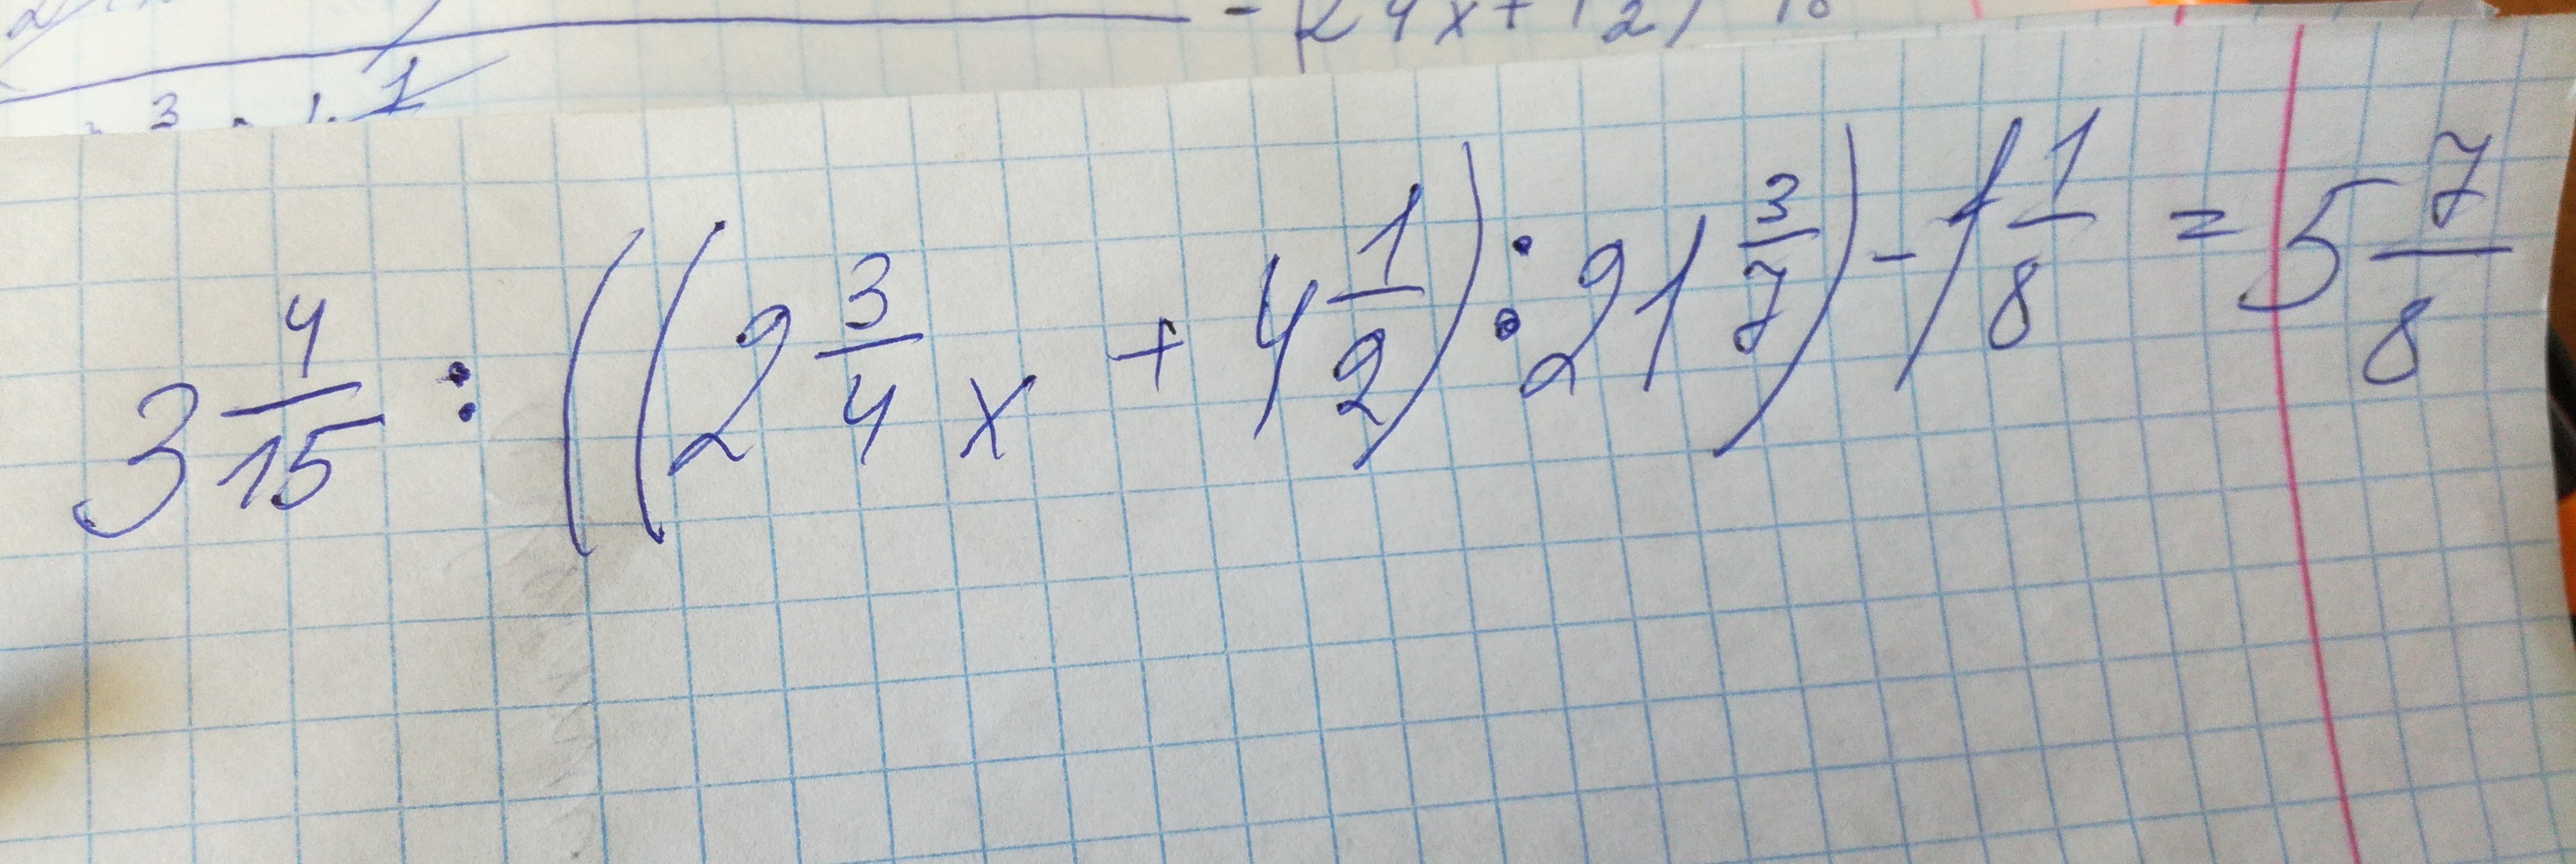 - (2 4x + 1 2)
3 1
3 4/15 : ((2 3/4 x + 4 1/2) : 21 3/7) - 1 1/8 = 5 7/8